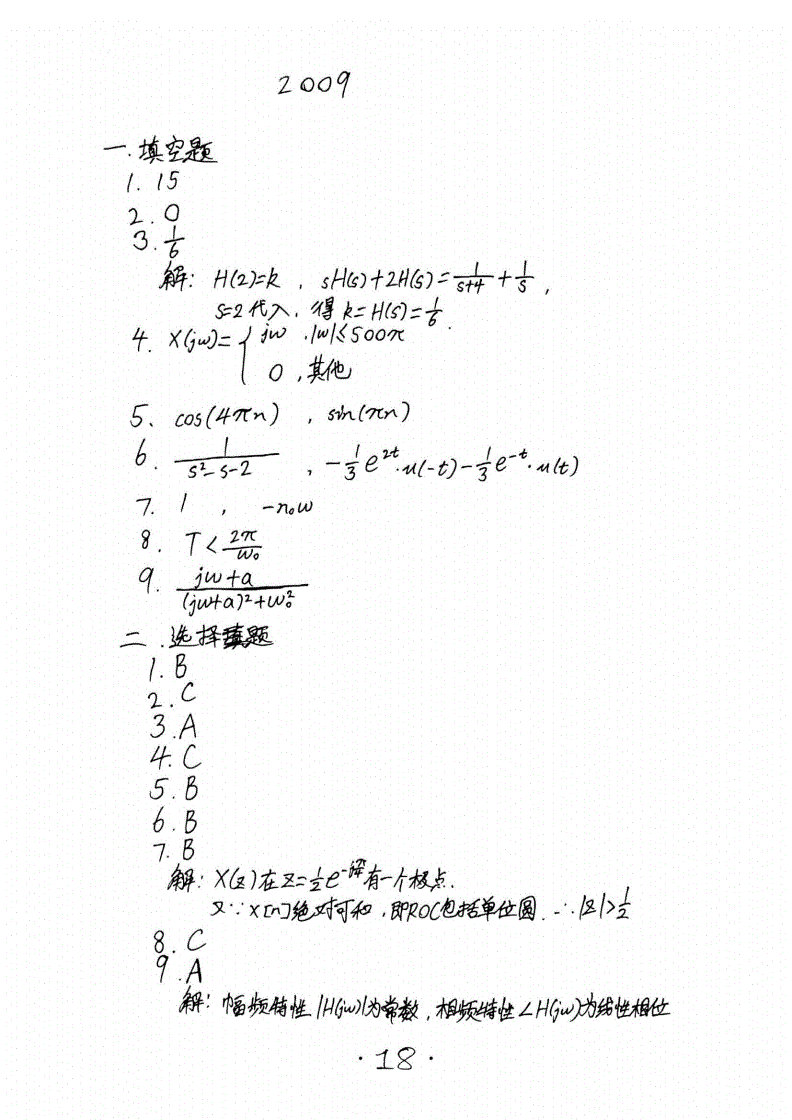 2009
一.填空题
1. 15
2. 0
3. 1/6
解: H(2)=k , sH(s)+2H(s)=1/(s+4)+1/s ,
s=2代入, 得 k=H(s)=1/6.
4. X(jw)={ jw ,|w|≤500π
0 ,其他
5. cos(4πn) , sin(πn)
6. 1/(s²-s-2) , -1/3 e^{2t}·u(-t)-1/3 e^{-t}·u(t)
7. 1 , -n₀w
8. T<2π/w₀
9. (jw+a)/((jw+a)²+w₀²)
二.选择题
1. B
2. C
3. A
4. C
5. B
6. B
7. B
解: X(z)在z=1/2 有一个极点.
又∵x[n]绝对可和,即ROC包括单位圆. ∴|z|>1/2
8. C
9. A
解: 幅频特性|H(jw)|为常数,相频特性∠H(jw)为线性相位
·18·